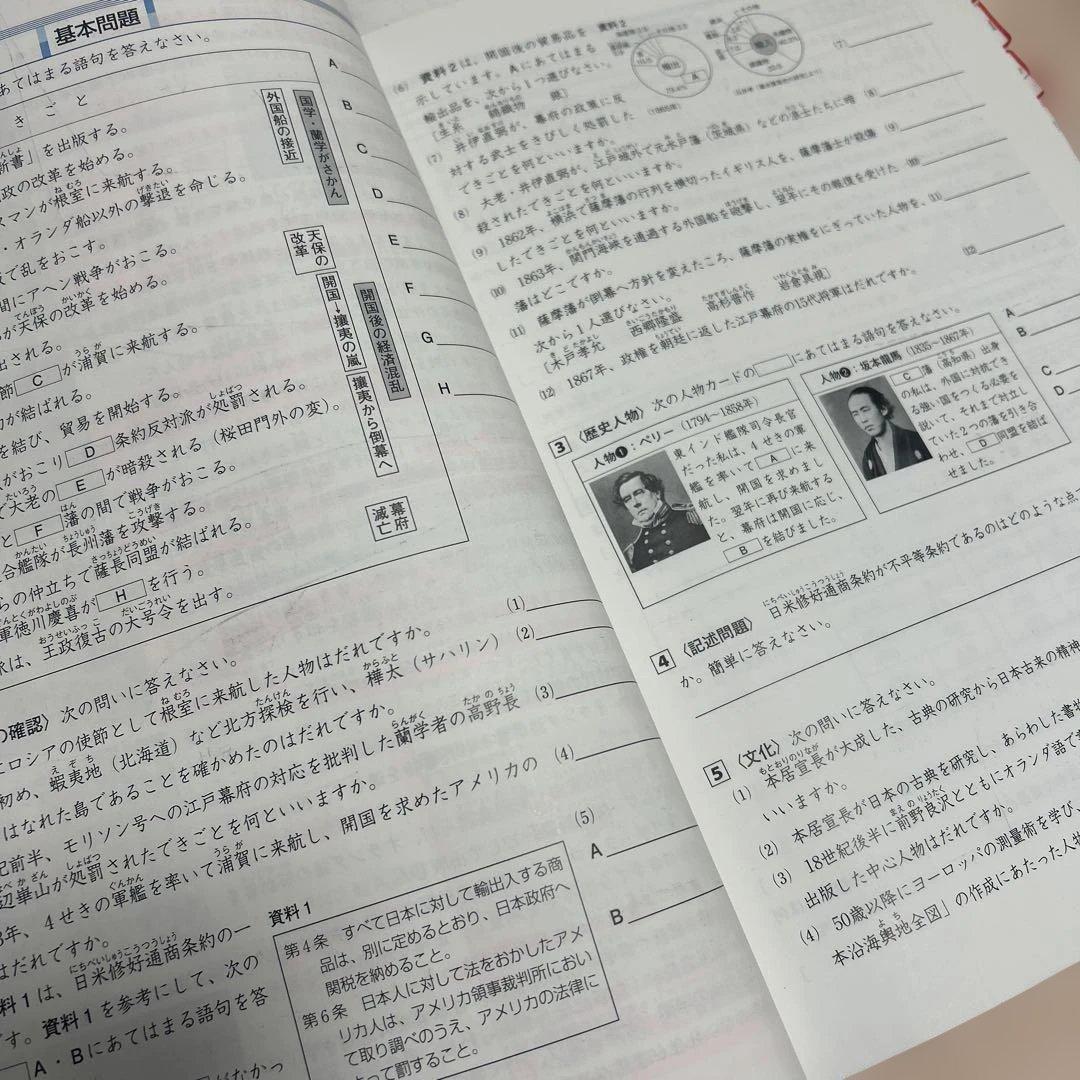 基本問題
あてはまる語句を答えなさい。
きごと
新書」を出版する。
政の改革を始める。
スマンが根室に来航する。
・オランダ船以外の撃退を命じる。
で乱をおこす。
間にアヘン戦争がおこる。
が天保の改革を始める。
出される。
節 C が浦賀に来航する。
が結ばれる。
を結び、貿易を開始する。
がおこり D 条約反対派が処罰される
で大老の E が暗殺される（桜田門外の変）。
と F 藩の間で戦争がおこる。
合艦隊が長州藩を攻撃する。
らの仲立ちで薩長同盟が結ばれる。
軍徳川慶喜が H を行う。
派は、王政復古の大号令を出す。
外国船の接近
国学・蘭学がさかん
天保の改革
開国→攘夷の嵐
開国後の経済混乱
攘夷から倒幕へ
幕府滅亡
A
B
C
D
E
F
G
H
の確認〉 次の問いに答えなさい。
ロシアの使節として根室に来航した人物はだれですか。
初め、蝦夷地（北海道）など北方探検を行い、樺太（サハリン）
はなれた島であることを確かめたのはだれですか。
紀前半、モリソン号への江戸幕府の対応を批判した蘭学者の高野長
辺崋山が処罰されたできごとを何といいますか。
3年、4せきの軍艦を率いて浦賀に来航し、開国を求めたアメリカの
はだれですか。
料1は、日米修好通商条約の一
です。資料1を参考にして、次の
A・Bにあてはまる語句を答
(1)
(2)
(3)
(4)
(5)
A
B
資料1
第4条 すべて日本に対して輸出入する商
品は、別に定めるとおり、日本政府へ
関税を納めること。
第6条 日本人に対して法をおかしたアメ
リカ人は、アメリカ領事裁判所におい
て取り調べのうえ、アメリカの法律に
よって罰すること。
(6) 資料2は、開国後の貿易品を
示しています。Aにあてはまる
輸出品を、次から1つ選びなさい。
〔生糸 綿織物 銀〕
資料2
輸出
輸入
A
(7) 井伊直弼が、幕府の政策に反
対する武士をきびしく処罰した
できごとを何といいますか。
(8) 大老・井伊直弼が、江戸城外で元水戸藩（茨城県）などの浪士たちに暗
殺されたできごとを何といいますか。
(9) 1862年、横浜で薩摩藩の行列を横切ったイギリス人を、薩摩藩士が殺傷
したできごとを何といいますか。
(10) 1863年、関門海峡を通過する外国船を砲撃し、翌年にその報復を受けた
藩はどこですか。
(11) 薩摩藩が倒幕へ方針を変えたころ、薩摩藩の実権をにぎっていた人物を、
次から1人選びなさい。
〔木戸孝允 西郷隆盛 高杉晋作 岩倉具視〕
(12) 1867年、政権を朝廷に返した江戸幕府の15代将軍はだれですか。
(7)
(8)
(9)
(10)
(11)
(12)
3 〈歴史人物〉 次の人物カードの にあてはまる語句を答えなさい。
人物❶：ペリー（1794～1858年）
東インド艦隊司令長官
だった私は、4せきの軍
艦を率いて A に来
航し、開国を求めまし
た。翌年に再び来航する
と、幕府は開国に応じ、
B を結びました。
人物❷：坂本龍馬（1835～1867年）
C 藩（高知県）出身
の私は、外国に対抗でき
る強い国をつくる必要を
説いて、それまで対立し
ていた2つの藩を引き合
わせ、 D 同盟を結ば
せました。
A
B
C
D
4 〈記述問題〉 日米修好通商条約が不平等条約であるのはどのような点で
か。簡単に答えなさい。
5 〈文化〉 次の問いに答えなさい。
(1) 本居宣長が大成した、古典の研究から日本古来の精神
いいますか。
(2) 本居宣長が日本の古典を研究し、あらわした書物
(3) 18世紀後半に前野良沢とともにオランダ語で
出版した中心人物はだれですか。
(4) 50歳以降にヨーロッパの測量術を学び、
本沿海輿地全図」の作成にあたった人物